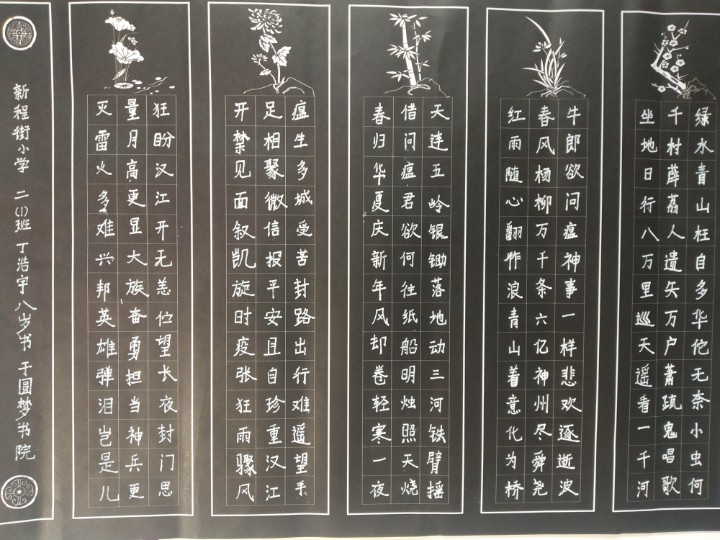 绿水青山枉自多华佗无奈小虫何
千村薜荔人遗矢万户萧疏鬼唱歌
坐地日行八万里巡天遥看一千河
牛郎欲问瘟神事一样悲欢逐逝波
春风杨柳万千条六亿神州尽舜尧
红雨随心翻作浪青山着意化为桥
天连五岭银锄落地动三河铁臂摇
借问瘟君欲何往纸船明烛照天烧
春归华夏庆新年风却卷轻寒一夜
瘟生多城受苦封路出行难遥望手
足相聚微信报平安且自珍重汉江
开禁见面叙凯旋时疫张狂雨骤风
狂盼汉江开无恙位望长夜封门思
量月高更显大族奋勇担当神兵更
灭雷火多难兴邦英雄弹泪岂是儿
新程街小学 二(1)班 丁浩宇八岁书 于圆梦书院